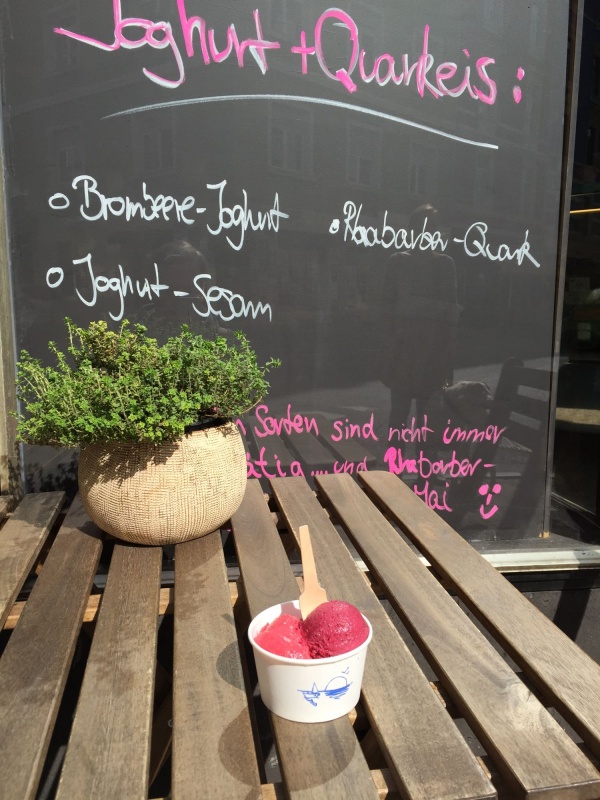 Joghurt + Quarkeis :
Brombeere-Joghurt
Rhabarber-Quark
Joghurt - Sesam
Sorten sind nicht immer
und Rhabarber-
Mai